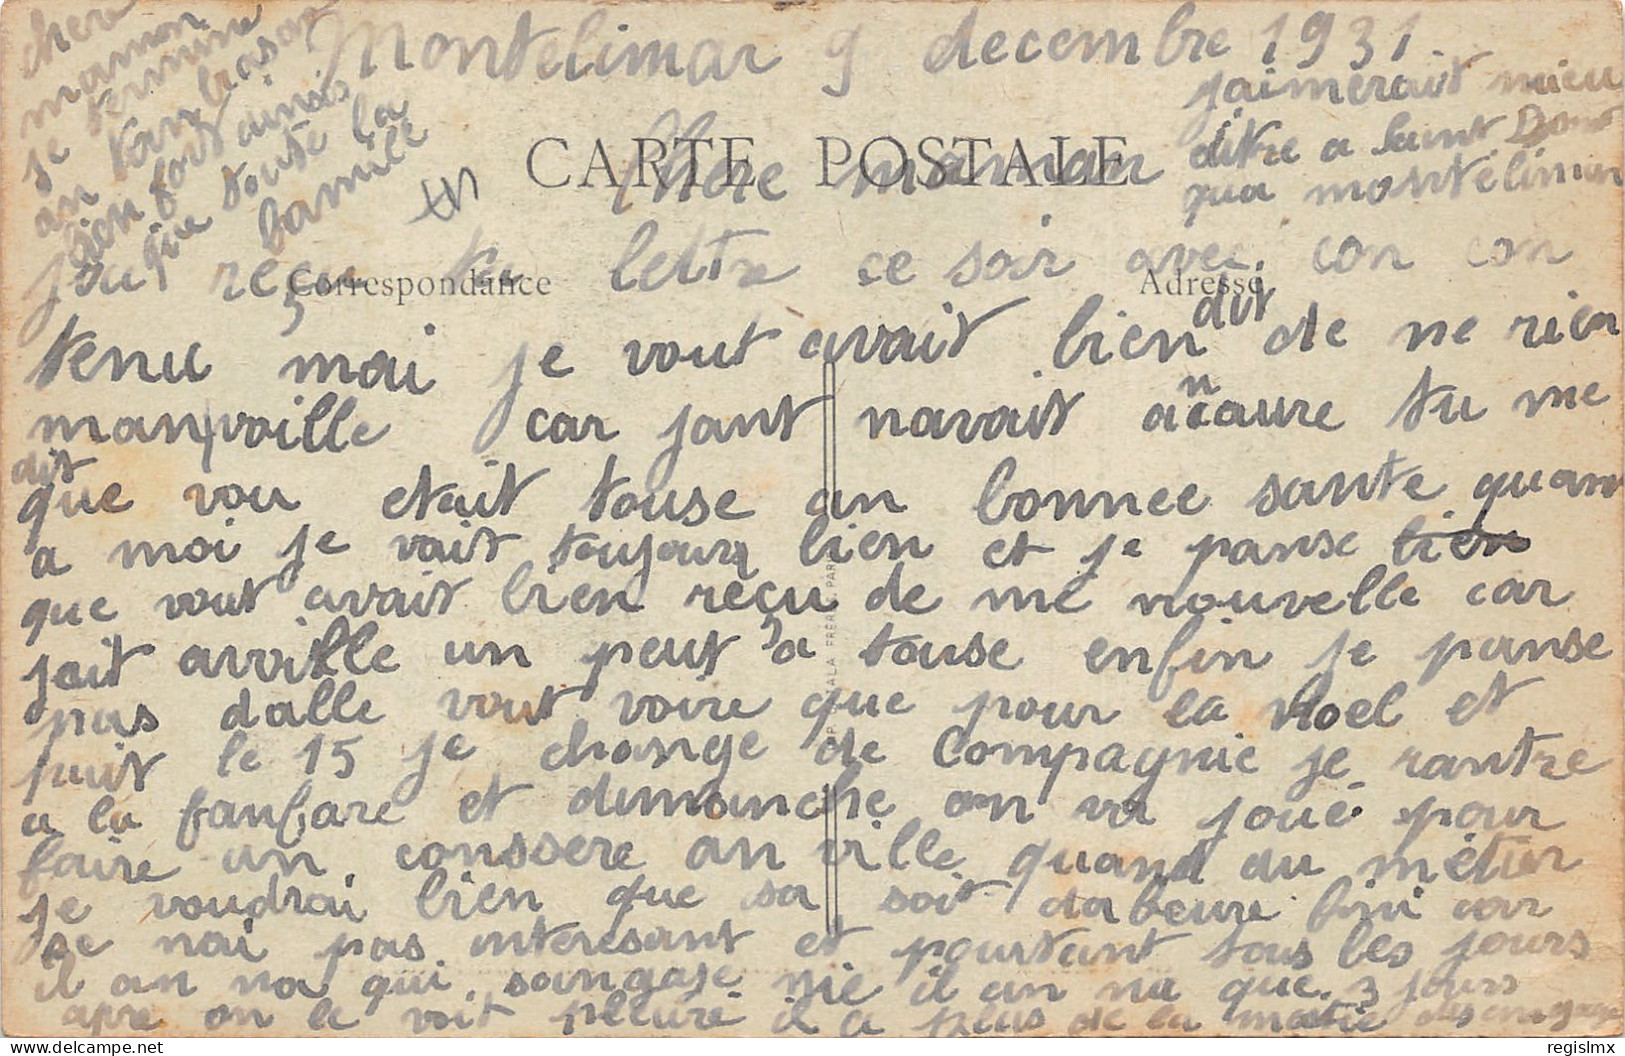 Montelimar 9 decembre 1931
CARTE POSTALE
Chere maman
Correspondance
Adresse
jai reçu ta lettre ce soir avec con con
tenu mai je vout avait bien dit de ne rien
manvoille car jant navait ancaure tu me
dit
que vou etait touse an bonnee sante quant
a moi je vait toujour bien et je panse bien
que vout avait bien reçu de me nouvelle car
jait avville un peut a touse enfin je panse
pas dalle vout voire que pour la Noel et
puit le 15 je change de Compagnie je rantre
a la fanfare et dimanche on va joué pour
faire un conssere an ville quand du métier
je voudrai bien que sa soit dabeure fini car
se nai pas interesant et pourtant tous les jours
il an na qui sangage mie il an na que 3 jours
apre on le voit pleuré il a plus de la matie des engage
jaimerait mieu
ditre a Saint Dona
qua montelimar
chere
maman
je termine
an tanbrasan
bien fort ainsis
que toute la
famille
EDN
regislmx